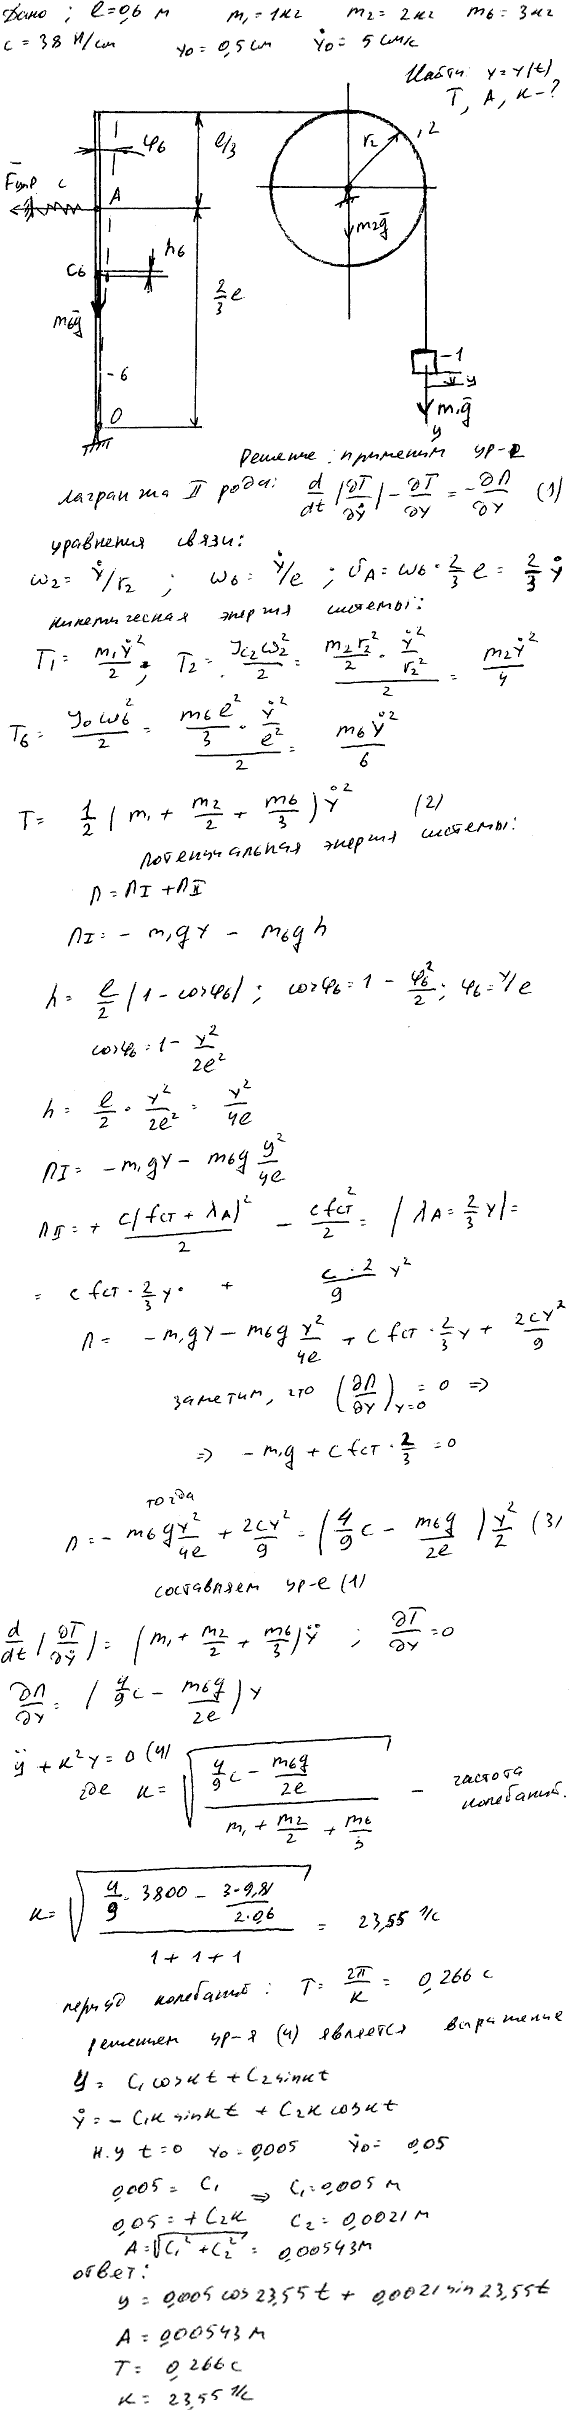 Дано: ℓ=0,6 м m₁=1кг m₂=2кг m₆=3кг
c=38 Н/см y₀=0,5см ẏ₀=5 см/с
Найти y=y(t)
T, A, к-?
φ₆
ℓ/3
r₂
2
F̄упр c
A
m₂ḡ
C₆
h₆
2/3 ℓ
m₆ḡ
-6
-1
y
O
m₁ḡ
y
Решение: применим ур-е
Лагранжа II рода: d/dt (∂T/∂ẏ) - ∂T/∂y = -∂П/∂y (1)
уравнения связи:
ω₂= ẏ/r₂ ; ω₆= ẏ/ℓ ; υA=ω₆·2/3 ℓ= 2/3 ẏ
кинетическая энергия системы:
T₁= m₁ẏ²/2; T₂= Jc₂ω₂²/2 = (m₂r₂²/2 · ẏ²/r₂²)/2 = m₂ẏ²/4
T₆= J₀ω₆²/2 = (m₆ℓ²/3 · ẏ²/ℓ²)/2 = m₆ẏ²/6
T= 1/2 (m₁ + m₂/2 + m₆/3) ẏ² (2)
потенциальная энергия системы:
П= ПI + ПII
ПI= - m₁gy - m₆gh
h= ℓ/2 (1 - cosφ₆); cosφ₆=1 - φ₆²/2; φ₆=y/ℓ
cosφ₆=1- y²/2ℓ²
h= ℓ/2 · y²/2ℓ² = y²/4ℓ
ПI= -m₁gy - m₆g y²/4ℓ
ПII= + c(fст + λA)²/2 - cfст²/2 = (λA= 2/3 y)=
= cfст · 2/3 y · + c·2/9 y²
П= -m₁gy - m₆g y²/4ℓ + cfст · 2/3 y + 2cy²/9
заметим, что (∂П/∂y)y=0 = 0 ⇒
⇒ -m₁g + cfст · 2/3 =0
тогда
П= - m₆gy²/4ℓ + 2cy²/9 = (4/9 c - m₆g/2ℓ) y²/2 (3)
составляем ур-е (1)
d/dt (∂T/∂ẏ) = (m₁+ m₂/2 + m₆/3)ÿ ; ∂T/∂y=0
∂П/∂y= (4/9 c - m₆g/2ℓ) y
ÿ + к²y=0 (4)
где к= √((4/9 c - m₆g/2ℓ)/(m₁ + m₂/2 + m₆/3)) - частота колебаний.
к= √((4/9 · 3800 - 3·9,81/2·0,6)/(1+1+1)) = 23,55 1/с
период колебаний: T= 2π/к = 0,266 с
решением ур-я (4) является выражение
y= C₁cosкt + C₂sinкt
ẏ= - C₁к sinкt + C₂к cosкt
н.у t=0 y₀=0,005 ẏ₀= 0,05
0,005 = C₁ ⇒ C₁=0,005 м
0,05= + C₂к C₂= 0,0021 м
A=√(C₁²+C₂²) = 0,00543м
ответ:
y = 0,005 cos 23,55 t + 0,0021 sin 23,55t
A= 0,00543 м
T= 0,266 с
к= 23,55 1/с